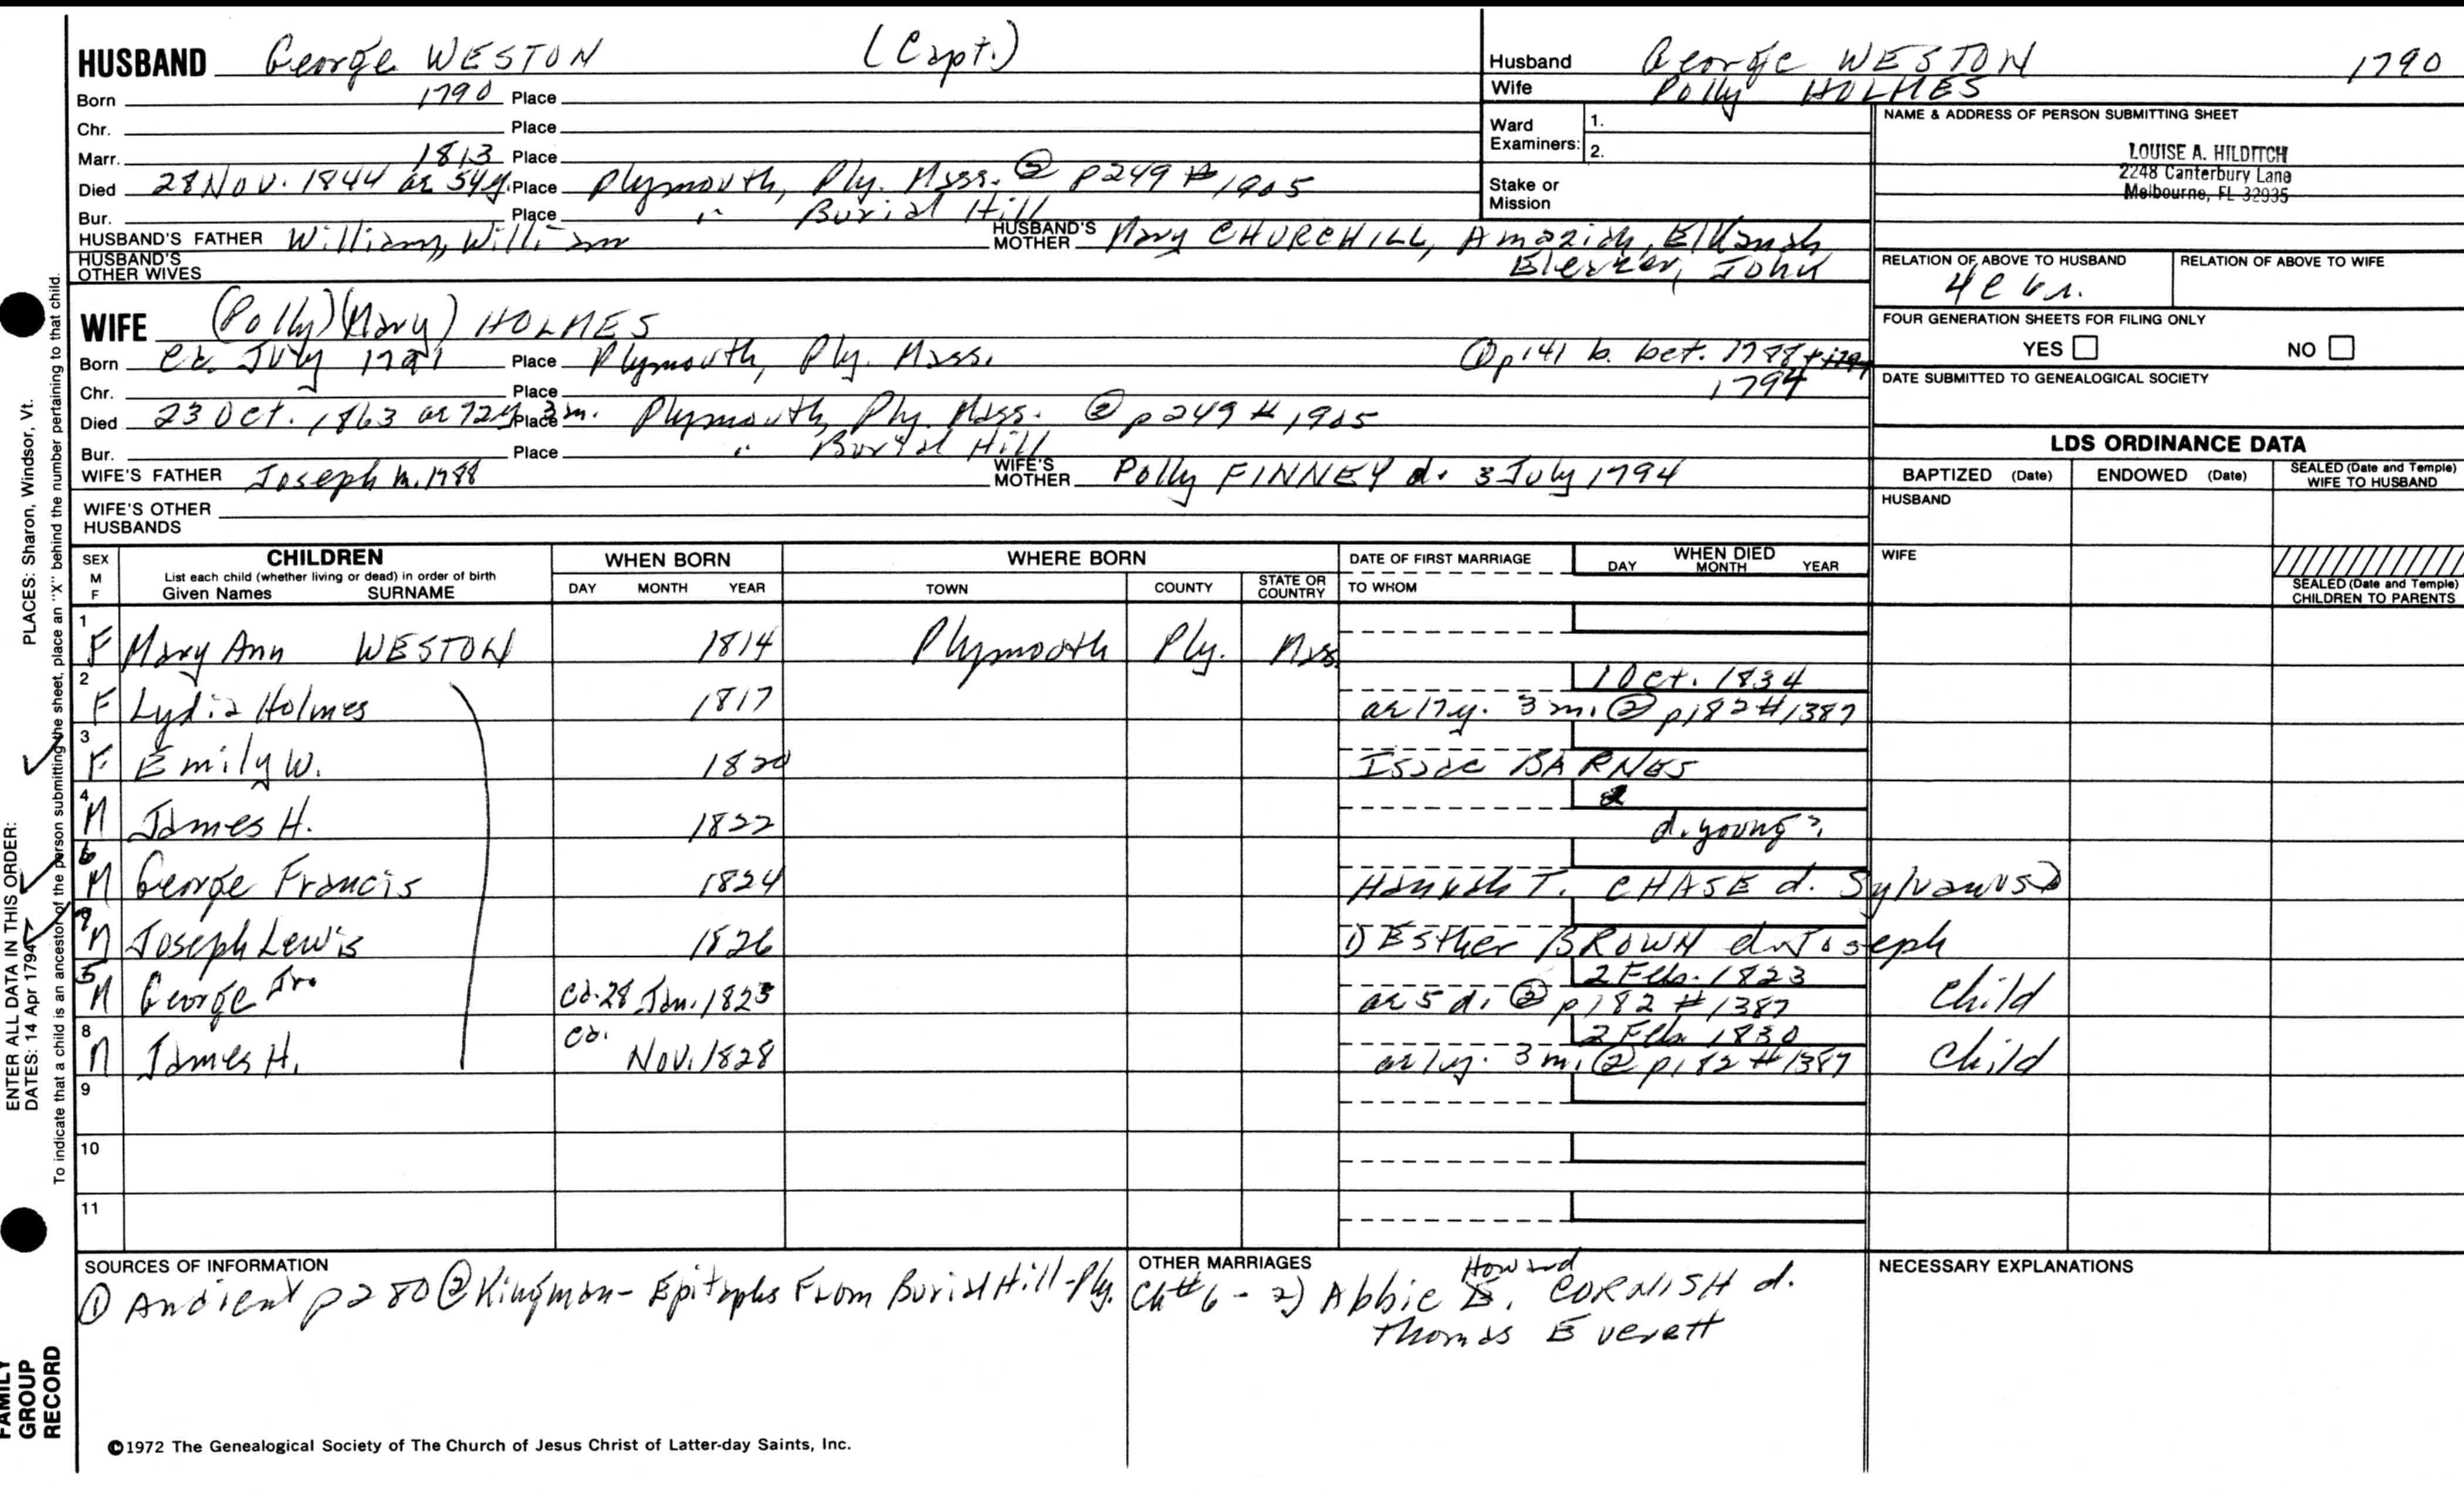 HUSBAND George WESTON (Capt.)
Born 1790 Place
Chr. Place
Marr. 1813 Place
Died 28 Nov. 1844 ae 54y. Place Plymouth, Ply. Mass. ② p249 # 1905
Bur. Place " Burial Hill
HUSBAND'S FATHER William, William HUSBAND'S MOTHER Mary CHURCHILL, Amaziah, Elkanah
HUSBAND'S OTHER WIVES Eleazer, John
Husband George WESTON 1790
Wife Polly HOLMES
Ward Examiners: 1.
2.
Stake or Mission
NAME & ADDRESS OF PERSON SUBMITTING SHEET
LOUISE A. HILDITCH
2248 Canterbury Lane
Melbourne, FL 32935
RELATION OF ABOVE TO HUSBAND RELATION OF ABOVE TO WIFE
FOUR GENERATION SHEETS FOR FILING ONLY
YES NO
DATE SUBMITTED TO GENEALOGICAL SOCIETY
WIFE (Polly) (Mary) HOLMES
Born ca. July 1791 Place Plymouth, Ply. Mass. ① p141 b. bet. 1788 +
1794
Chr. Place
Died 23 Oct. 1863 ae 72y 3m. Place Plymouth, Ply. Mass. ② p249 # 1905
Bur. Place " Burial Hill
WIFE'S FATHER Joseph m. 1788 WIFE'S MOTHER Polly FINNEY d. 3 July 1794
WIFE'S OTHER HUSBANDS
LDS ORDINANCE DATA
BAPTIZED (Date) ENDOWED (Date) SEALED (Date and Temple) WIFE TO HUSBAND
HUSBAND
WIFE
SEALED (Date and Temple) CHILDREN TO PARENTS
SEX M F CHILDREN WHEN BORN WHERE BORN DATE OF FIRST MARRIAGE WHEN DIED
List each child (whether living or dead) in order of birth
Given Names SURNAME DAY MONTH YEAR TOWN COUNTY STATE OR COUNTRY TO WHOM DAY MONTH YEAR
1 F Mary Ann WESTON 1814 Plymouth Ply. Mass.
1 Oct. 1834
2 F Lydia Holmes 1817 ae 17y. 3 m. ② p182 # 1387
3 F Emily W. 1820 Isaac BARNES
4 M James H. 1822 d. young?
6 M George Francis 1824 Hannah T. CHASE d. Sylvanus
7 M Joseph Lewis 1826 1) Esther BROWN d. Joseph
2 Feb. 1823
5 M George Jr. ca. 28 Jan. 1823 ae 5 d. ② p182 # 1387 child
2 Feb 1830
8 M James H. ca. Nov. 1828 ae 1y. 3 m. ② p182 # 1387 child
9
10
11
SOURCES OF INFORMATION
① Ancient p280 ② Kingman - Epitaphs From Burial Hill - Ply.
OTHER MARRIAGES
Ch # 6 - 2) Abbie Howard CORNISH d.
Thomas Everett
NECESSARY EXPLANATIONS
©1972 The Genealogical Society of The Church of Jesus Christ of Latter-day Saints, Inc.
FAMILY GROUP RECORD
ENTER ALL DATA IN THIS ORDER:
DATES: 14 Apr 1794
PLACES: Sharon, Windsor, Vt.
To indicate that a child is an ancestor of the person submitting the sheet, place an "X" behind the number pertaining to that child.